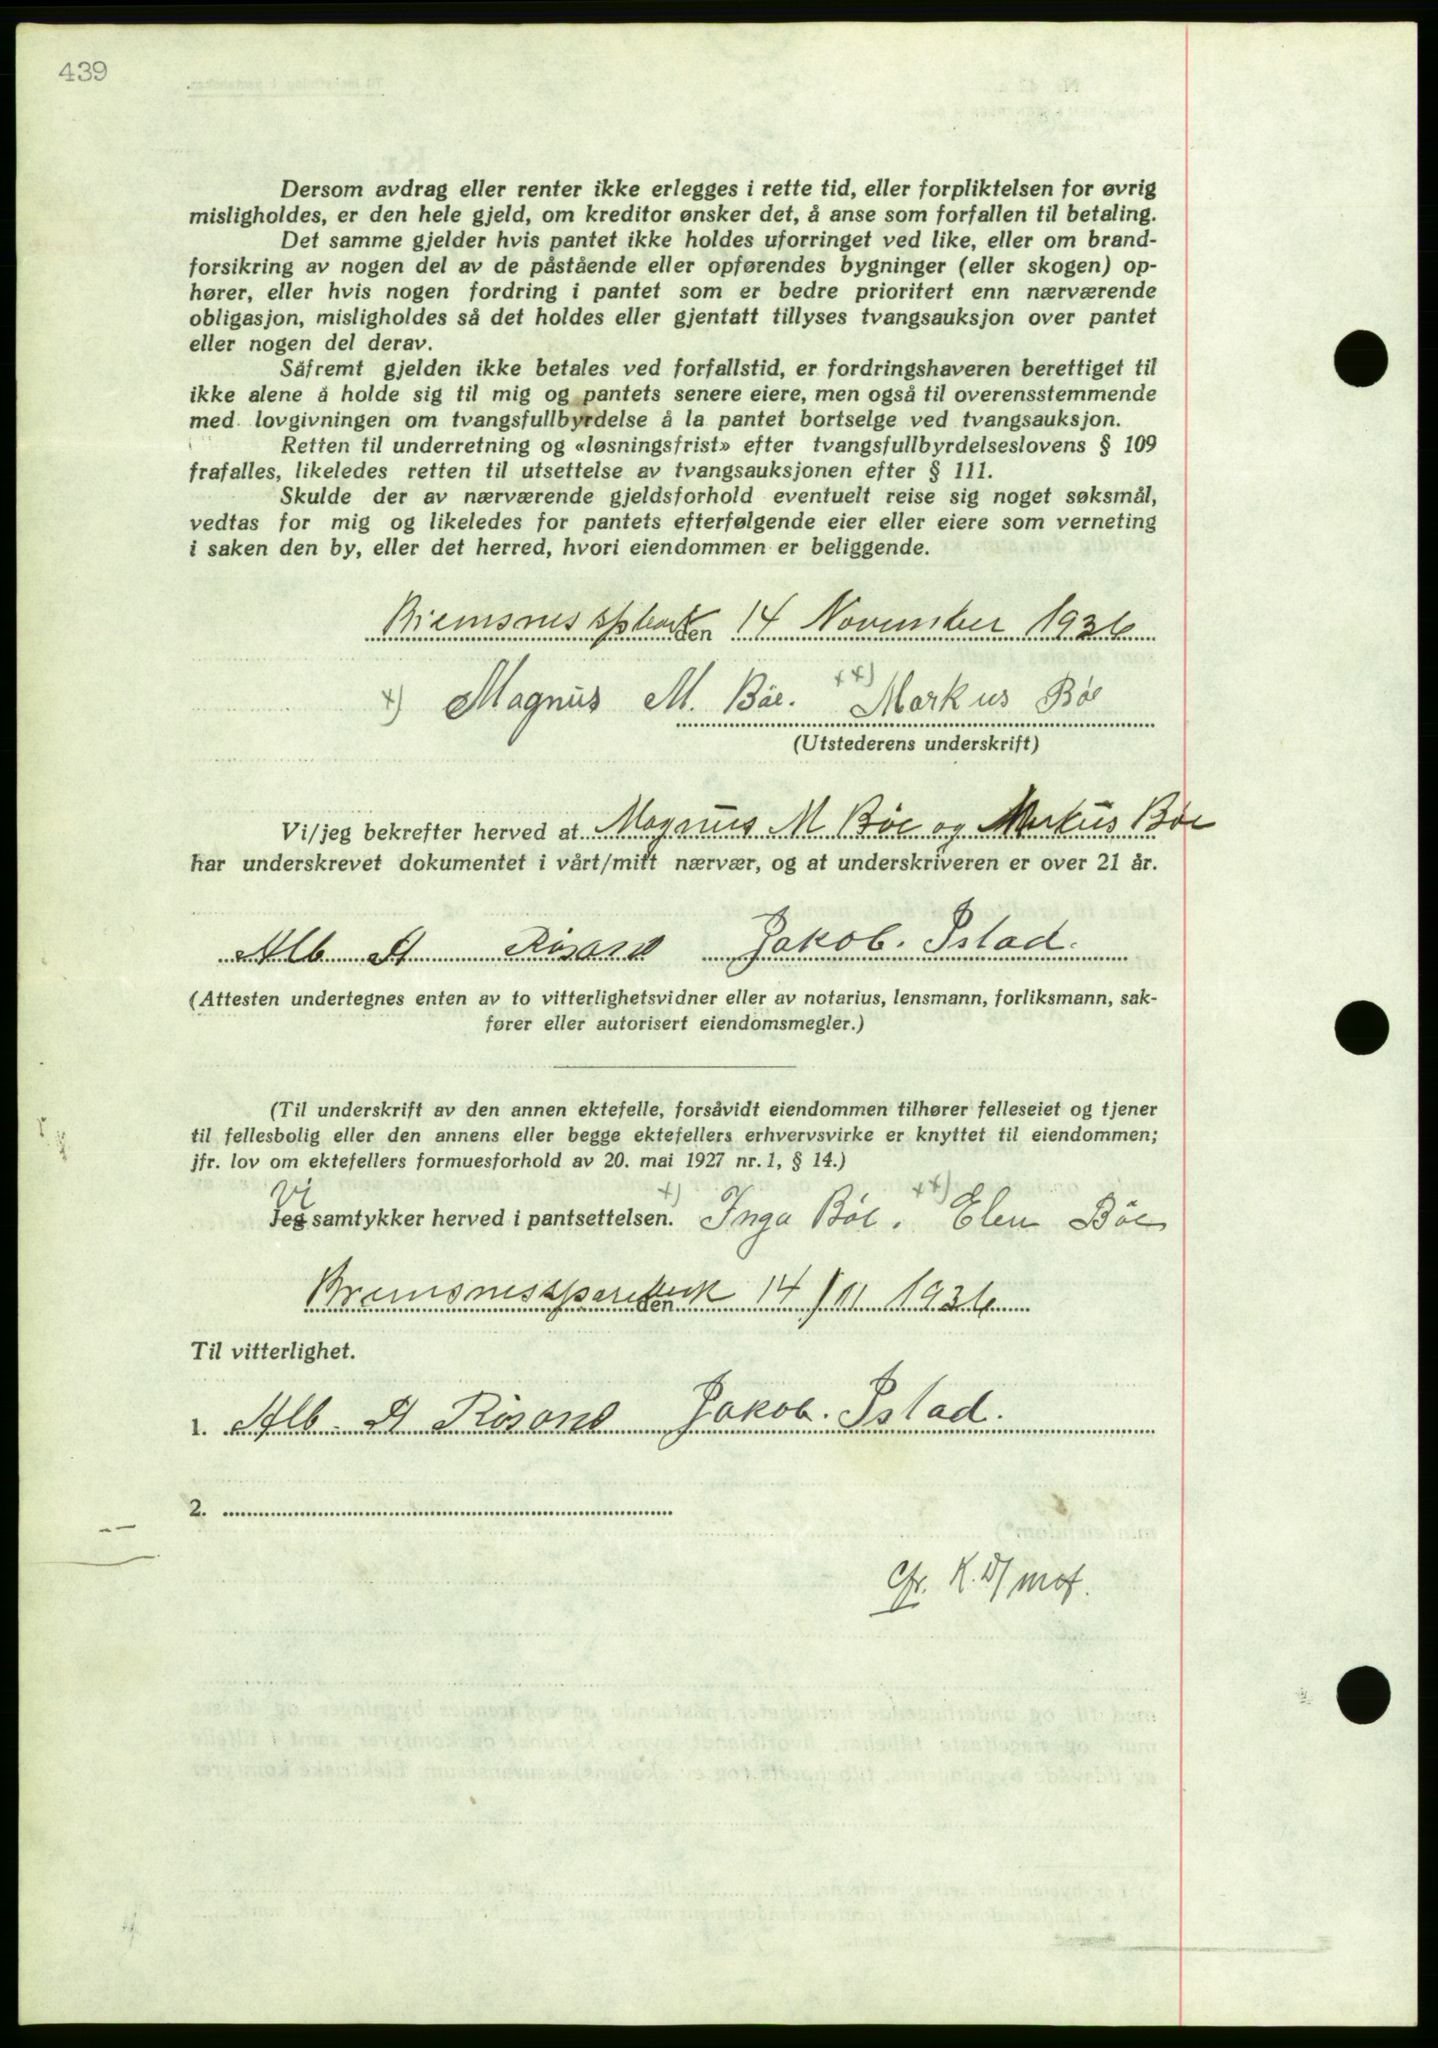 439
Dersom avdrag eller renter ikke erlegges i rette tid, eller forpliktelsen for øvrig
misligholdes, er den hele gjeld, om kreditor ønsker det, å anse som forfallen til betaling.
Det samme gjelder hvis pantet ikke holdes uforringet ved like, eller om brand-
forsikring av nogen del av de påstående eller opførendes bygninger (eller skogen) op-
hører, eller hvis nogen fordring i pantet som er bedre prioritert enn nærværende
obligasjon, misligholdes så det holdes eller gjentatt tillyses tvangsauksjon over pantet
eller nogen del derav.
Såfremt gjelden ikke betales ved forfallstid, er fordringshaveren berettiget til
ikke alene å holde sig til mig og pantets senere eiere, men også til overensstemmende
med lovgivningen om tvangsfullbyrdelse å la pantet bortselge ved tvangsauksjon.
Retten til underretning og «løsningsfrist» efter tvangsfullbyrdelseslovens § 109
frafalles, likeledes retten til utsettelse av tvangsauksjonen efter § 111.
Skulde der av nærværende gjeldsforhold eventuelt reise sig noget søksmål,
vedtas for mig og likeledes for pantets efterfølgende eier eller eiere som verneting
i saken den by, eller det herred, hvori eiendommen er beliggende.
Bremsnes spbank den 14 November 1936
x) Magnus M. Bøe. xx) Markus Bøe
(Utstederens underskrift)
Vi/jeg bekrefter herved at Magnus M Bøe og Markus Bøe
har underskrevet dokumentet i vårt/mitt nærvær, og at underskriveren er over 21 år.
Alb A Røsand Jakob. Istad.
(Attesten undertegnes enten av to vitterlighetsvidner eller av notarius, lensmann, forliksmann, sak-
fører eller autorisert eiendomsmegler.)
(Til underskrift av den annen ektefelle, forsåvidt eiendommen tilhører felleseiet og tjener
til fellesbolig eller den annens eller begge ektefellers erhvervsvirke er knyttet til eiendommen;
jfr. lov om ektefellers formuesforhold av 20. mai 1927 nr. 1, § 14.)
Vi
Jeg samtykker herved i pantsettelsen. x) Inga Bøe. xx) Elen Bøe
Bremsnes sparebank den 14/11 1936
Til vitterlighet.
1. Alb. A Røsand Jakob. Istad.
2.
Cfr. K.